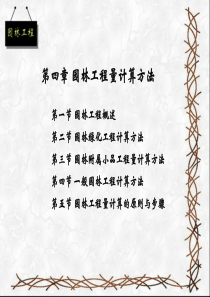 园林工程
第四章 园林工程量计算方法
第一节 园林工程概述
第二节 园林绿化工程计算方法
第三节 园林附属小品工程量计算方法
第四节 一般园林工程计算方法
第五节 园林工程量计算的原则与步骤